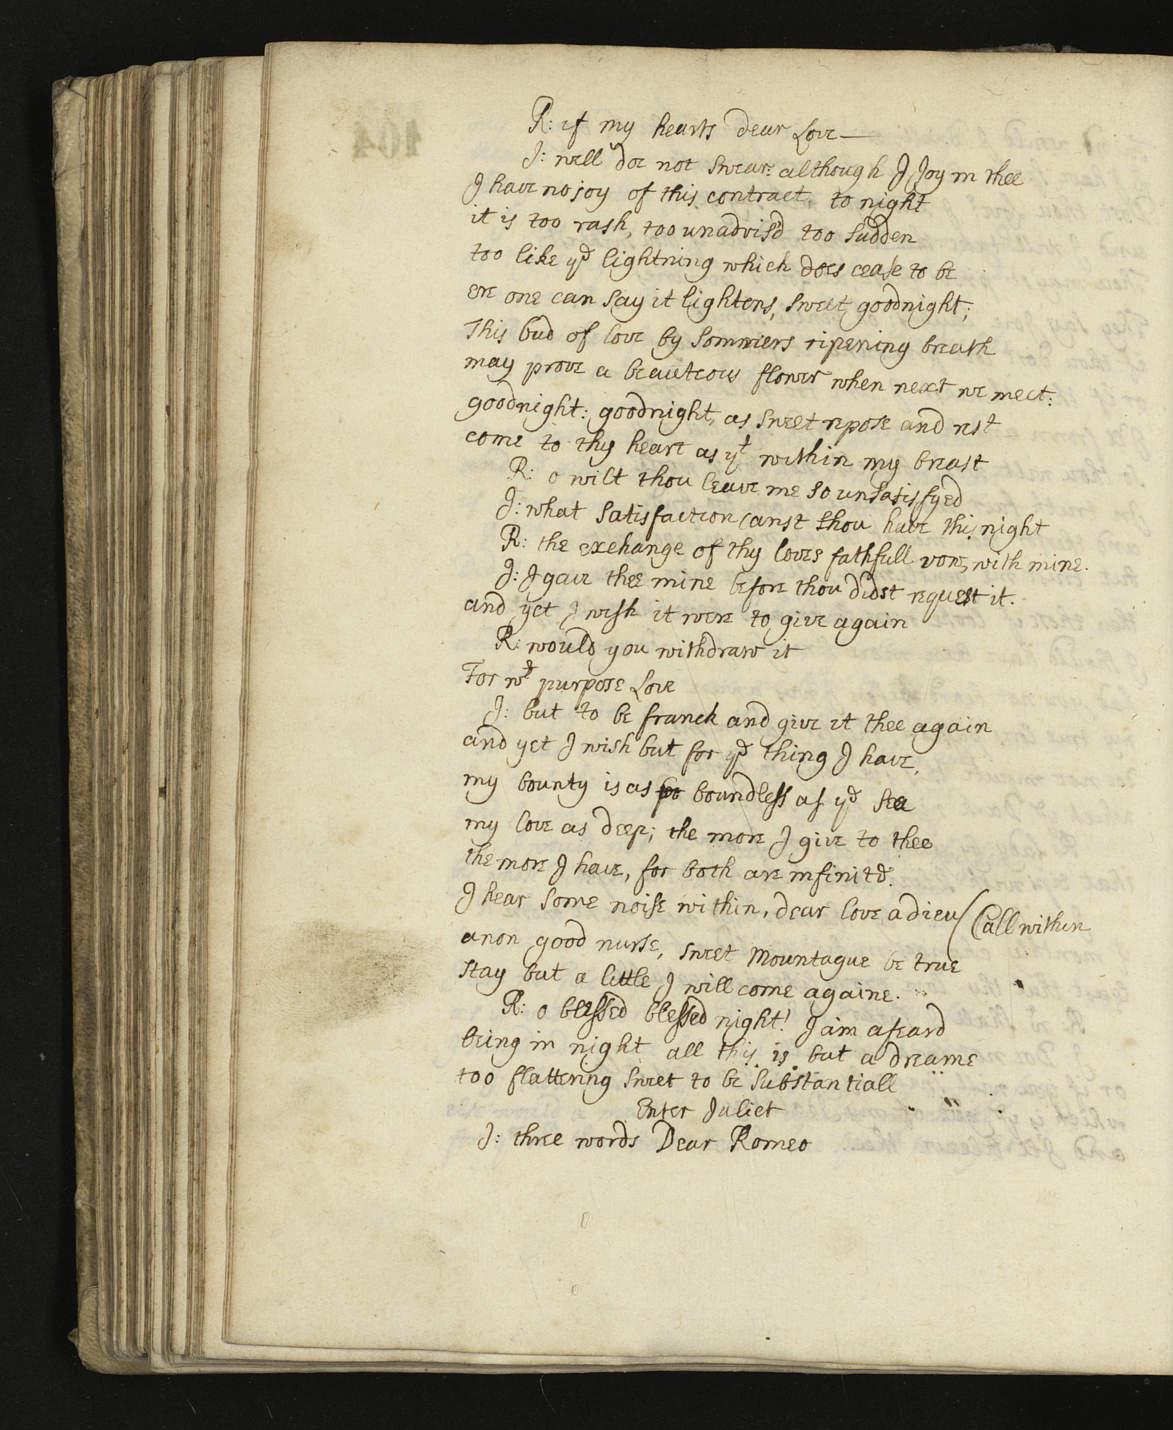 R: if my hearts dear Love—
J: well doe not swear: although I Joy in thee
I have no joy of this contract, to night
it is too rash, too unadvis'd too sudden
too like ye lightning which does cease to be
ere one can say it lightens, sweet goodnight;
This bud of love by sommers ripening breath
may prove a beauteous flower when next we meet:
goodnight: goodnight, as sweet repose and rest
come to thy heart as yt within my breast
R: o wilt thou leave me so unsatisfyed
J: what satisfaction canst thou have this night
R: the exchange of thy loves faithfull vow, with mine.
J: I gave thee mine before thou didst request it.
and yet I wish it were to give again
R: would you withdraw it
For wt purpose Love
J: but to be franck and give it thee again
and yet I wish but for ye thing I have,
my bounty is as so boundless as ye sea
my love as deep; the more I give to thee
the more I have, for both are infinite.
I hear some noise within, dear love adieu (Call within
anon good nurse, sweet Mountague be true
stay but a little I will come againe.
R: o blessed blessed night! I am afeard
being in night all this is but a dreame
too flattering sweet to be substantiall
Enter Juliet
J: three words Dear Romeo